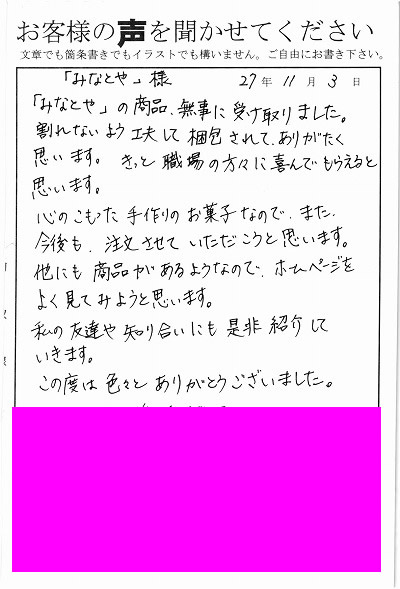 お客様の声を聞かせてください
文章でも箇条書きでもイラストでも構いません。ご自由にお書き下さい。
「みなとや」様 27年 11月 3日
「みなとや」の商品、無事に受け取りました。
割れないよう工夫して梱包されて、ありがたく
思います。 きっと職場の方々に喜んでもらえると
思います。
心のこもった手作りのお菓子なので、また、
今後も、注文させていただこうと思います。
他にも商品があるようなので、ホームページを
よく見てみようと思います。
私の友達や知り合いにも是非紹介して
いきます。
この度は色々とありがとうございました。